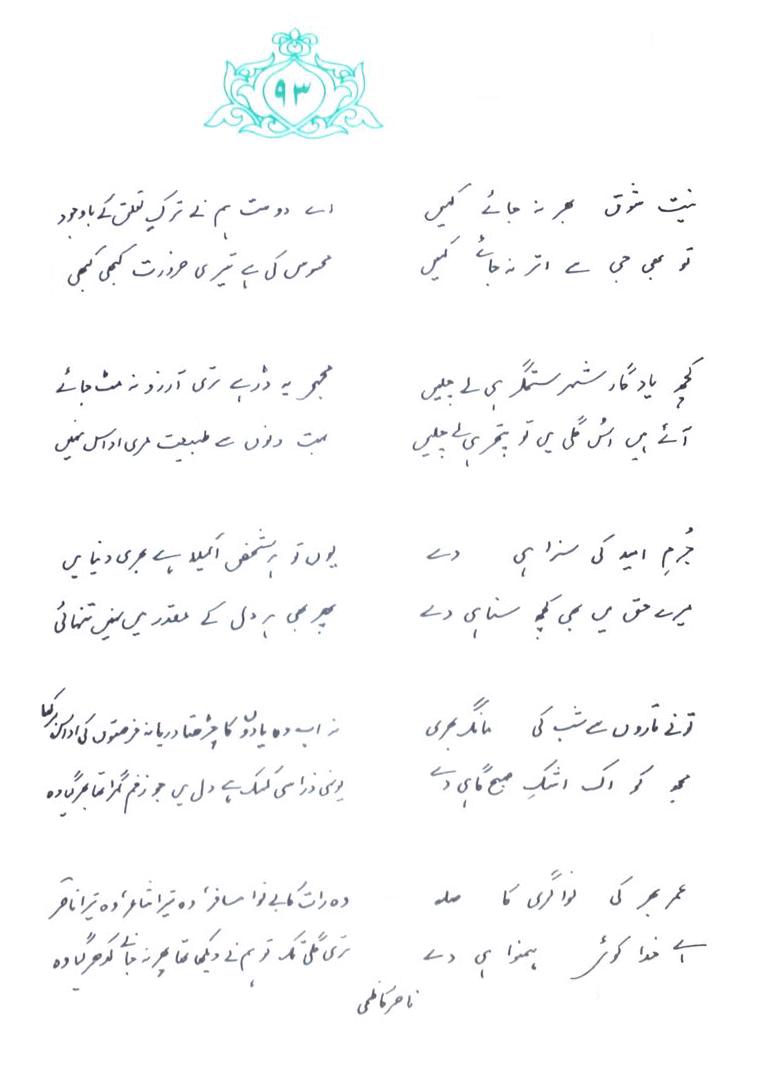 ۹۳
نیت شوق بھر نہ جائے کہیں
تو بھی جی سے اتر نہ جائے کہیں
کچھ یادگارِ شہر ستمگر ہی لے چلیں
آئے ہیں اس گلی میں تو پتھر ہی لے چلیں
جُرمِ امید کی سزا ہی دے
میرے حق میں بھی کچھ سنا ہی دے
تو نے تاروں سے شب کی مانگ بھری
مجھ کو اک اشکِ صبح گاہی دے
عمر بھر کی نواگری کا صلہ
اے خدا کوئی ہمنوا ہی دے
اے دوست ہم نے ترکِ تعلق کے باوجود
محسوس کی ہے تیری ضرورت کبھی کبھی
مجھے یہ ڈر ہے تری آرزو نہ مٹ جائے
بہت دنوں سے طبیعت مری اداس نہیں
یوں تو ہر شخص اکیلا ہے بھری دنیا میں
پھر بھی ہر دل کے مقدر میں نہیں تنہائی
نہ اب وہ یادوں کا چڑھتا دریا نہ فرصتوں کی اداس برکھا
یونہی ذرا سی کسک ہے دل میں جو زخم گہرا تھا بھر گیا وہ
وہ رات کا بے نوا مسافر، وہ تیرا شاعر، وہ تیرا ناصر
تری گلی تک تو ہم نے دیکھا تھا پھر نہ جانے کدھر گیا وہ
ناصر کاظمی